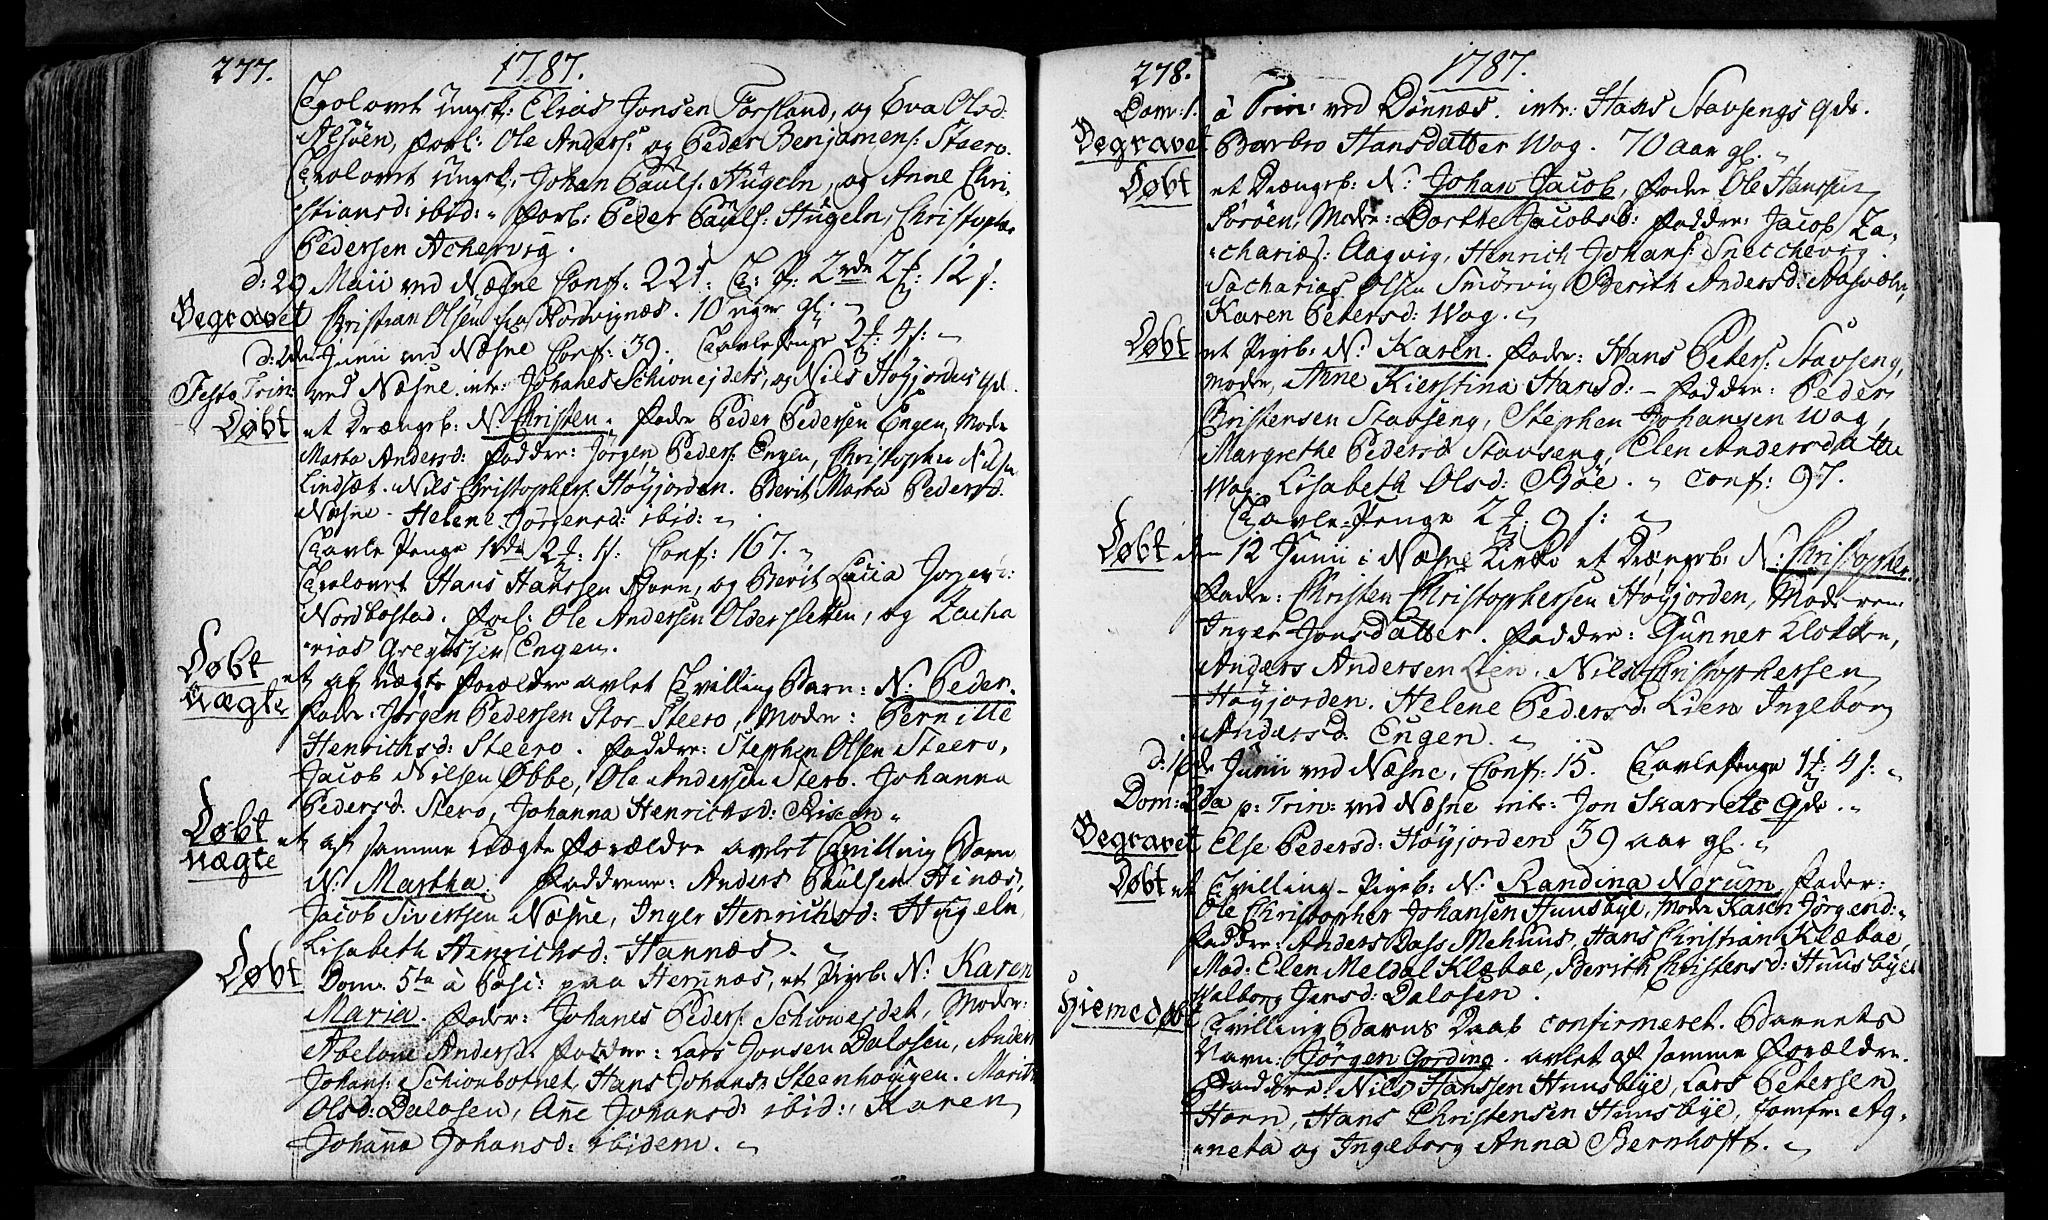 277. 1787.
Trolovet Ungk: Elias Jonsen Forsland, og Eva Olsd:
Alsøen, Forl: Ole Anders: og Peder Benjamens: Steero.
Trolovet Ungk: Johan Paüls: Hügeln, og Anne Chri-
stiansd: ibid: Forl: Peder Paüls: Hügeln, Christopher
Pedersen Achervig.
d: 29 Maii ved Næsne Conf: 221. T: P: 2 rdr 2 12 s:
Begravet Christian Olsen Nordvignæs. 10 uger gl:
d: 2den Junii ved Næsne Conf: 39. Tavlepenge 2 4 s:
Festo Trin: ved Næsne. intr: Johanes Schiowejdets, og Nils Høyjordens Qde.
Døbt et Drængeb: N: Christen. Fader Peder Pedersen Engen, Mode
Marta Andersd: Faddre: Jörgen Peders: Engen, Christopher Nilsen
Lindsæt. Nils Christophers: Høyjorden. Berit Marta Pedersd:
Næsne. Helene Jörgensd: ibid:
Tavle Penge 1 rdr 2 1 s: Conf: 167.
Trolovet Hans Hanssen Horn, og Berit Lucia Jörgensd:
Nordbostad. Forl: Ole Andersen Oldersletten, og Zacha
-rias Gregussen Engen.
Døbt uægte et af uægte Forældre avlet Tvilling Barn: N: Peder.
Fader: Jørgen Pedersen Stor-Steero, Moder: Pernille
Henrichsd: Steero. Faddre: Stephen Olsen Steero,
Jacob Nilsen Øbbe, Ole Andersen Stero. Johanna
Pedersd: Stero, Johanna Henrichsd: Risen
Døbt uægte et af samme uægte Forældre avlet Tvilling Barn
N: Martha. Faddrene: Anders Paulsen Hinæs,
Jacob Sivertsen Næsne, Inger Henrichsd: Hügeln,
Lisabeth Henrichsd: Hannæs.
Døbt Dom: 5ta à Pasc: paa Hemnæs, et Pigeb: N: Karen
Maria. Fader: Johanes Peders: Schiowejdet, Moder:
Abelone Andersd: Faddre: Lars Jonsen Dalosen, Anders
Johans: Schionbotnet, Hans Johans: Steenhougen. Marit
Olsd: Dalosen, Ane Johansd: ibid:, Karen
Johanna Johansd: ibidem.
278. 1787.
Dom: 1. à Trin: ved Dönnæs. intr: Hans Stavsengs Qde.
Begravet Barbro Hansdatter Wog. 70 aar gl.
Døbt et Drængeb: N: Johan Jacob, Fader Ole Hansen
Sörøen, Mode: Dorthe Jacobsd: Faddre: Jacob Za-
-chariæs: Aagvig, Henrich Johans: Snecchevig.
Sacharias Olsen Smørvig Berith Andersd: Aasvæln,
Karen Petersd: Wog.
Døbt et Pigeb: N: Karen. Fader: Hans Peters: Stavseng,
Moder, Anne Kierstina Hansd: - Faddre: Peder
Christensen Stavseng, Stephen Johansen Wog,
Margrethe Pedersd Stavseng, Elen Andersdatter
Wog. Lisabeth Olsd: Røe. conf: 97.
Tavle-Penge 2 9 s:
Døbt den 12 Junii i Næsne Kirke et Drængeb: N: Christopher.
Fader: Christen Christophersen Høyjorden, Moderen:
Inger Jonsdatter. Faddre: Gunner Klokker,
Anders Andersen Lien. Nils Christophersen
Høyjorden. Helene Pedersd: Lien Ingeborg
Andersd: Engen.
d: 16de Junii ved Næsne, Conf: 15. Tavlepenge 1 4 s:
Dom: 2da p: Trin: ved Næsne intr: Jon Skarrets Qde.
Begravet Else Pedersd: Høyjorden 39 aar gl.
Døbt et Tvilling-Pigeb: N: Randina Norum. Fader:
Ole Christopher Johansen Huusbÿe, Mode Karen Jörgensd:
Faddre: Anders Dass Mehuus, Hans Christian Klæboe,
Mad: Elen Meldal Klæboe, Berith Christensd: Huusbÿe
Walborg Jensd: Dalosen.
Hiemedøbt Tvilling Barns Daab confirmeret. Barnets
Navn: Jørgen Gording. avlet af samme Forældre.
Faddre: Niels Hanssen Huusbÿe, Lars Petersen
Horn, Hans Christensen Huusbÿe, Jomfr: Ag-
-neta og Ingeborg Anna Bernhofft.